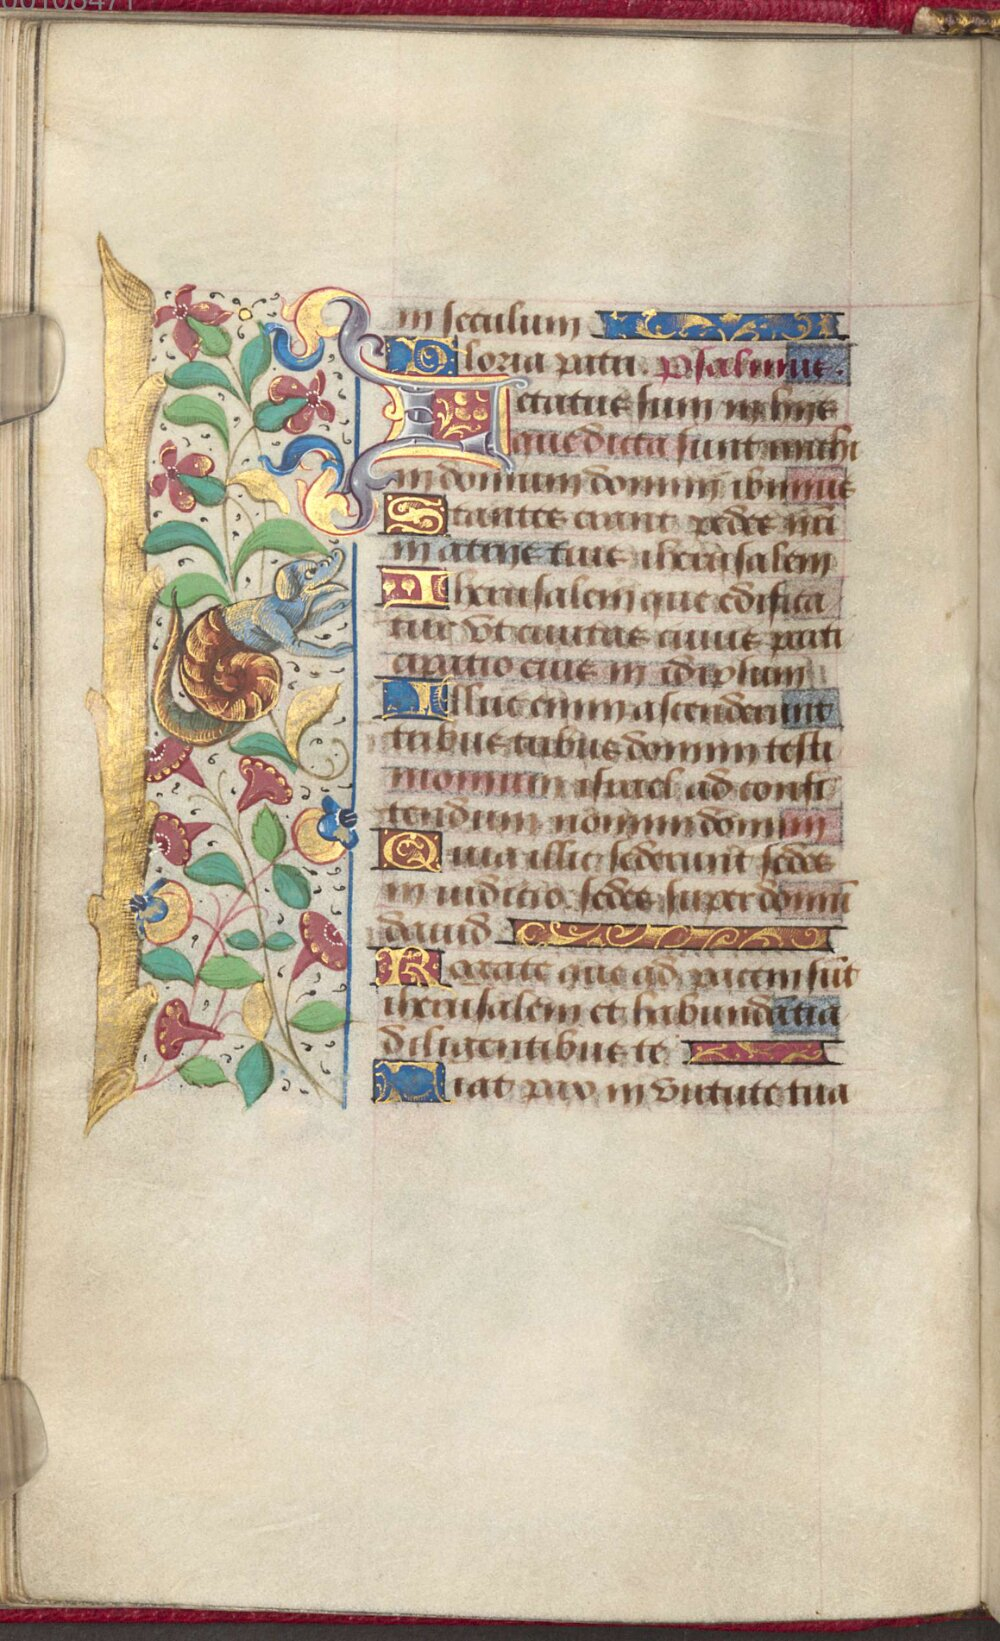 in seculum
Gloria patri. Psalmus.
Letatus sum in hijs
que dicta sunt michi
in domum domini ibimus
Stantes erant pedes nri
in atrijs tuis iherusalem
Iherusalem que edifica
tur vt ciuitas cuius parti
cipatio eius in idipsum
Illuc enim ascenderunt
tribus tribus domini testi
monium israel ad confi
tendum nomini domini
Quia illic sederunt sedes
in iuditio sedes super domū
dauid
Rogate que ad pacem sūt
iherusalem et habundātia
diligentibus te
Fiat pax in virtute tua